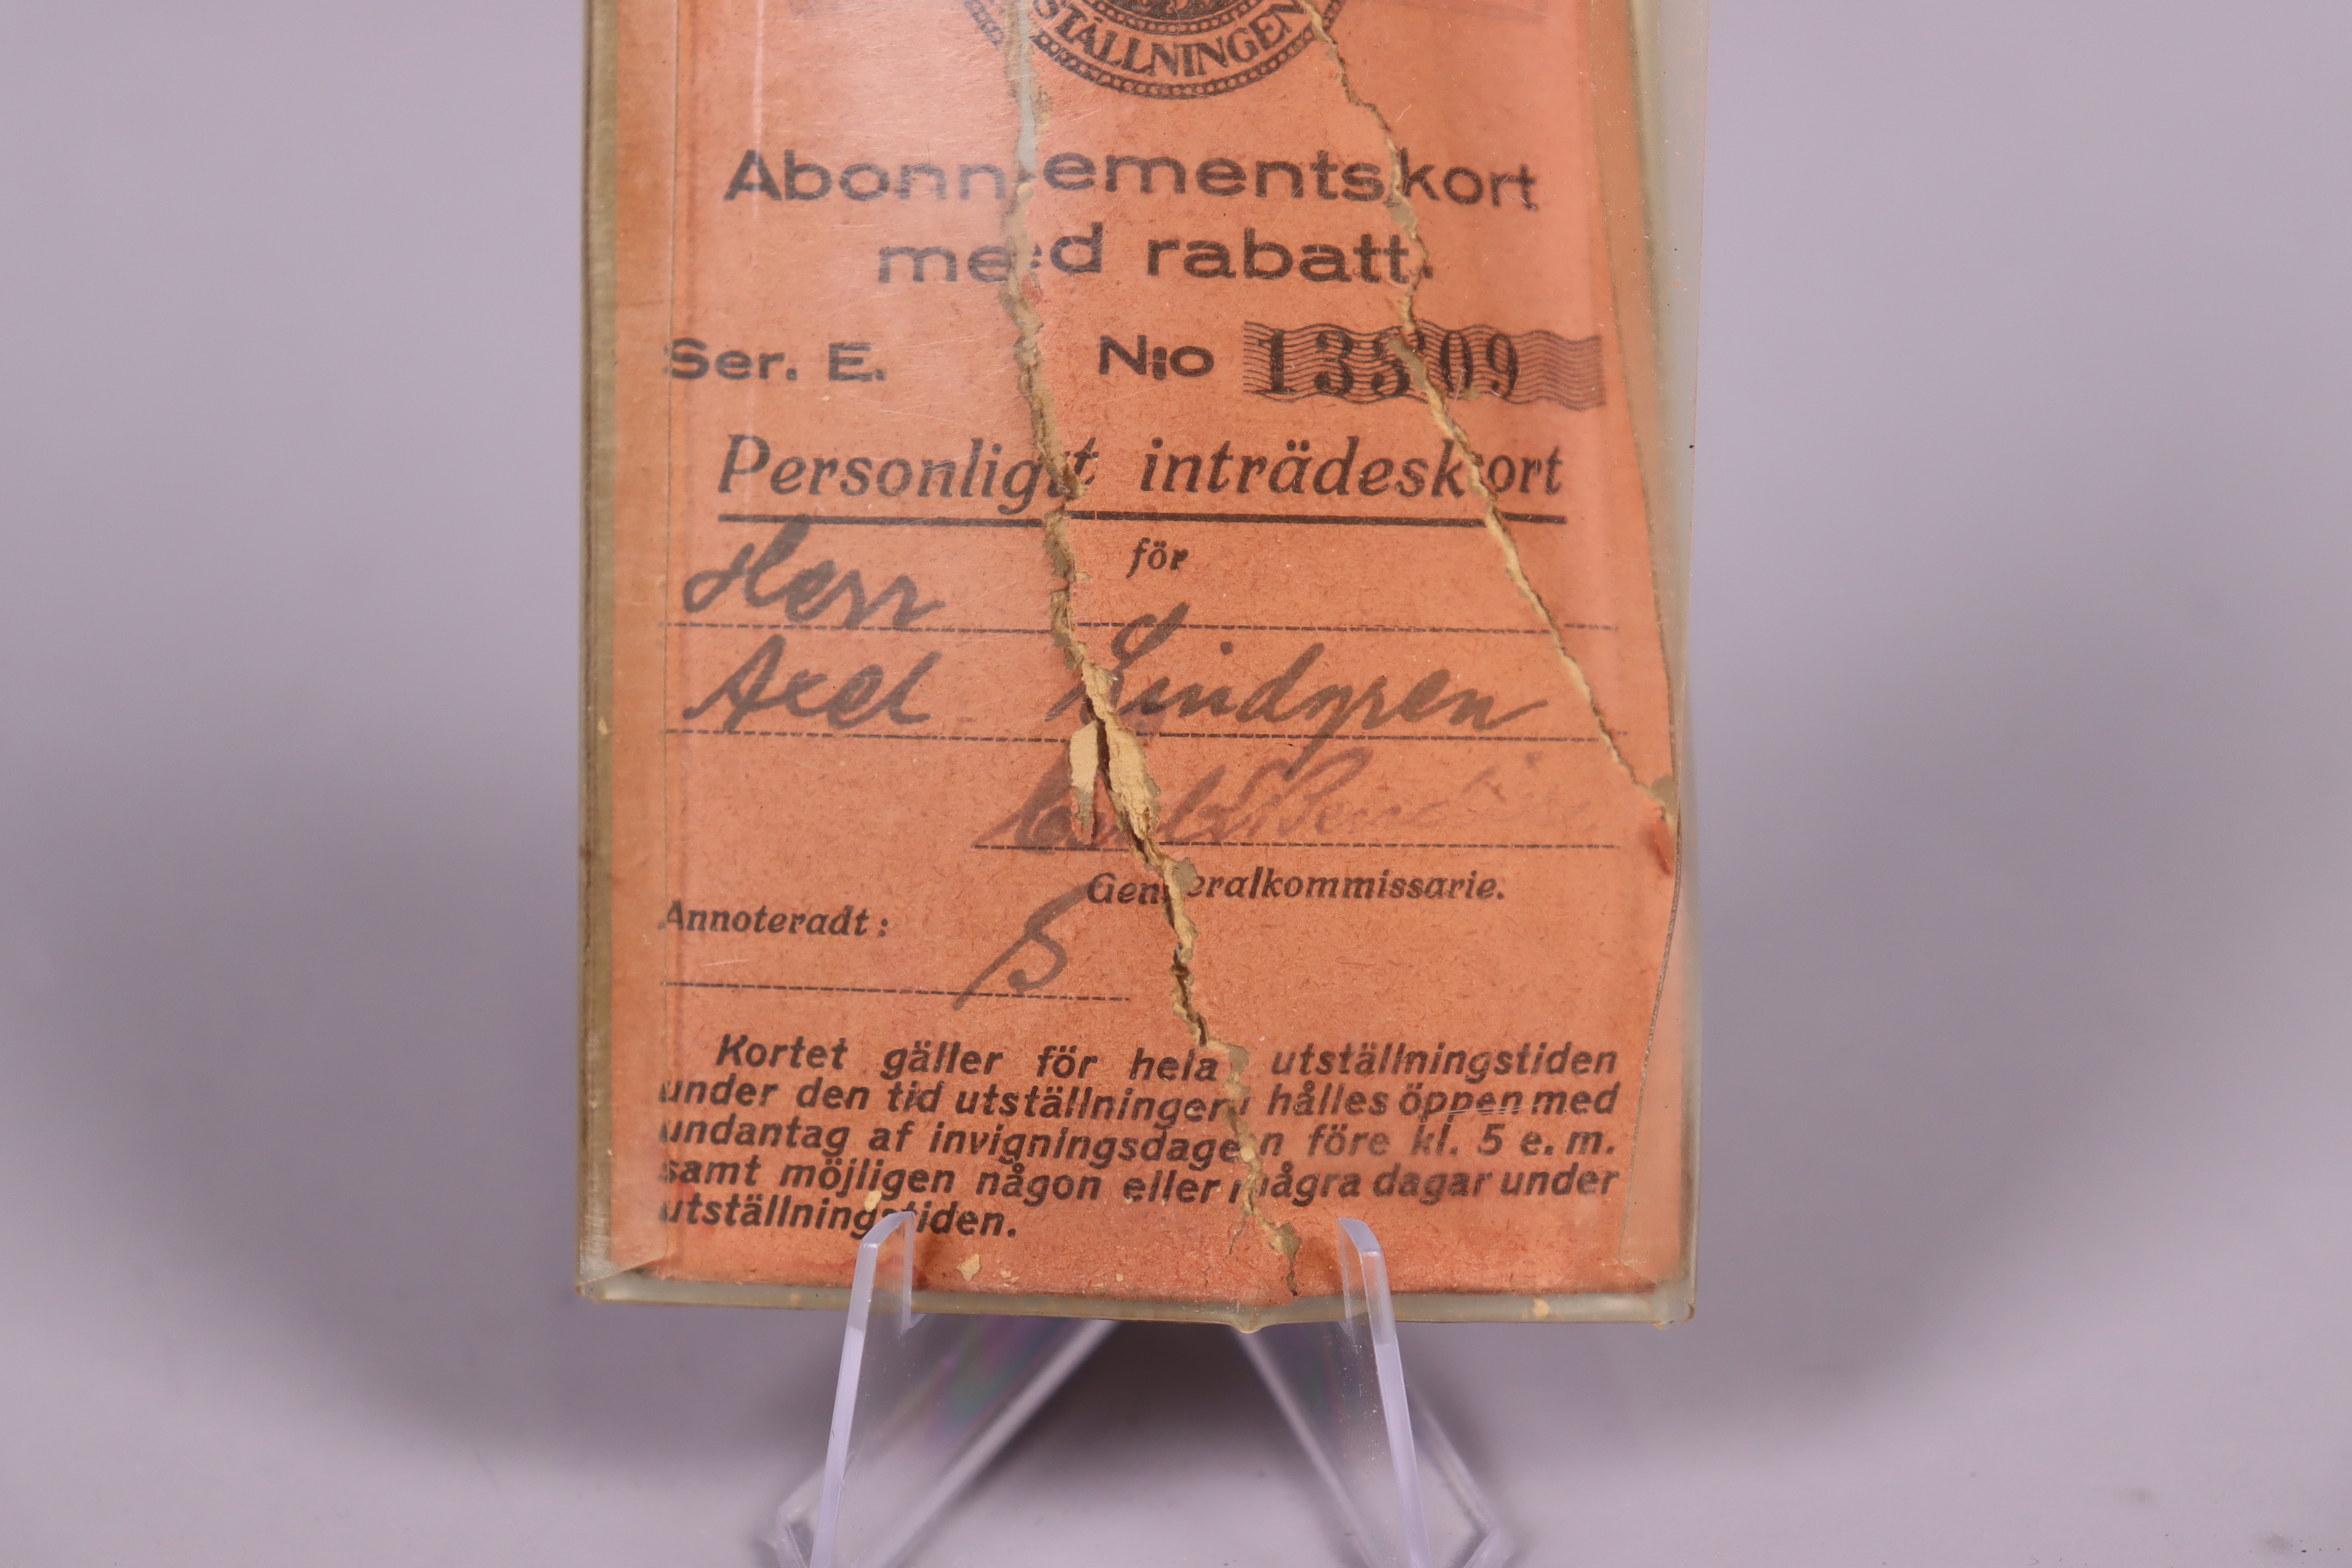 STÄLLNINGEN
Abonnementskort
med rabatt.
Ser. E. N:o 13309
Personligt inträdeskort
för
Herr
Axel Lindgren
Generalkommissarie.
Annoteradt:
Kortet gäller för hela utställningstiden
under den tid utställningen hålles öppen med
undantag af invigningsdagen före kl. 5 e. m.
samt möjligen någon eller några dagar under
utställningstiden.